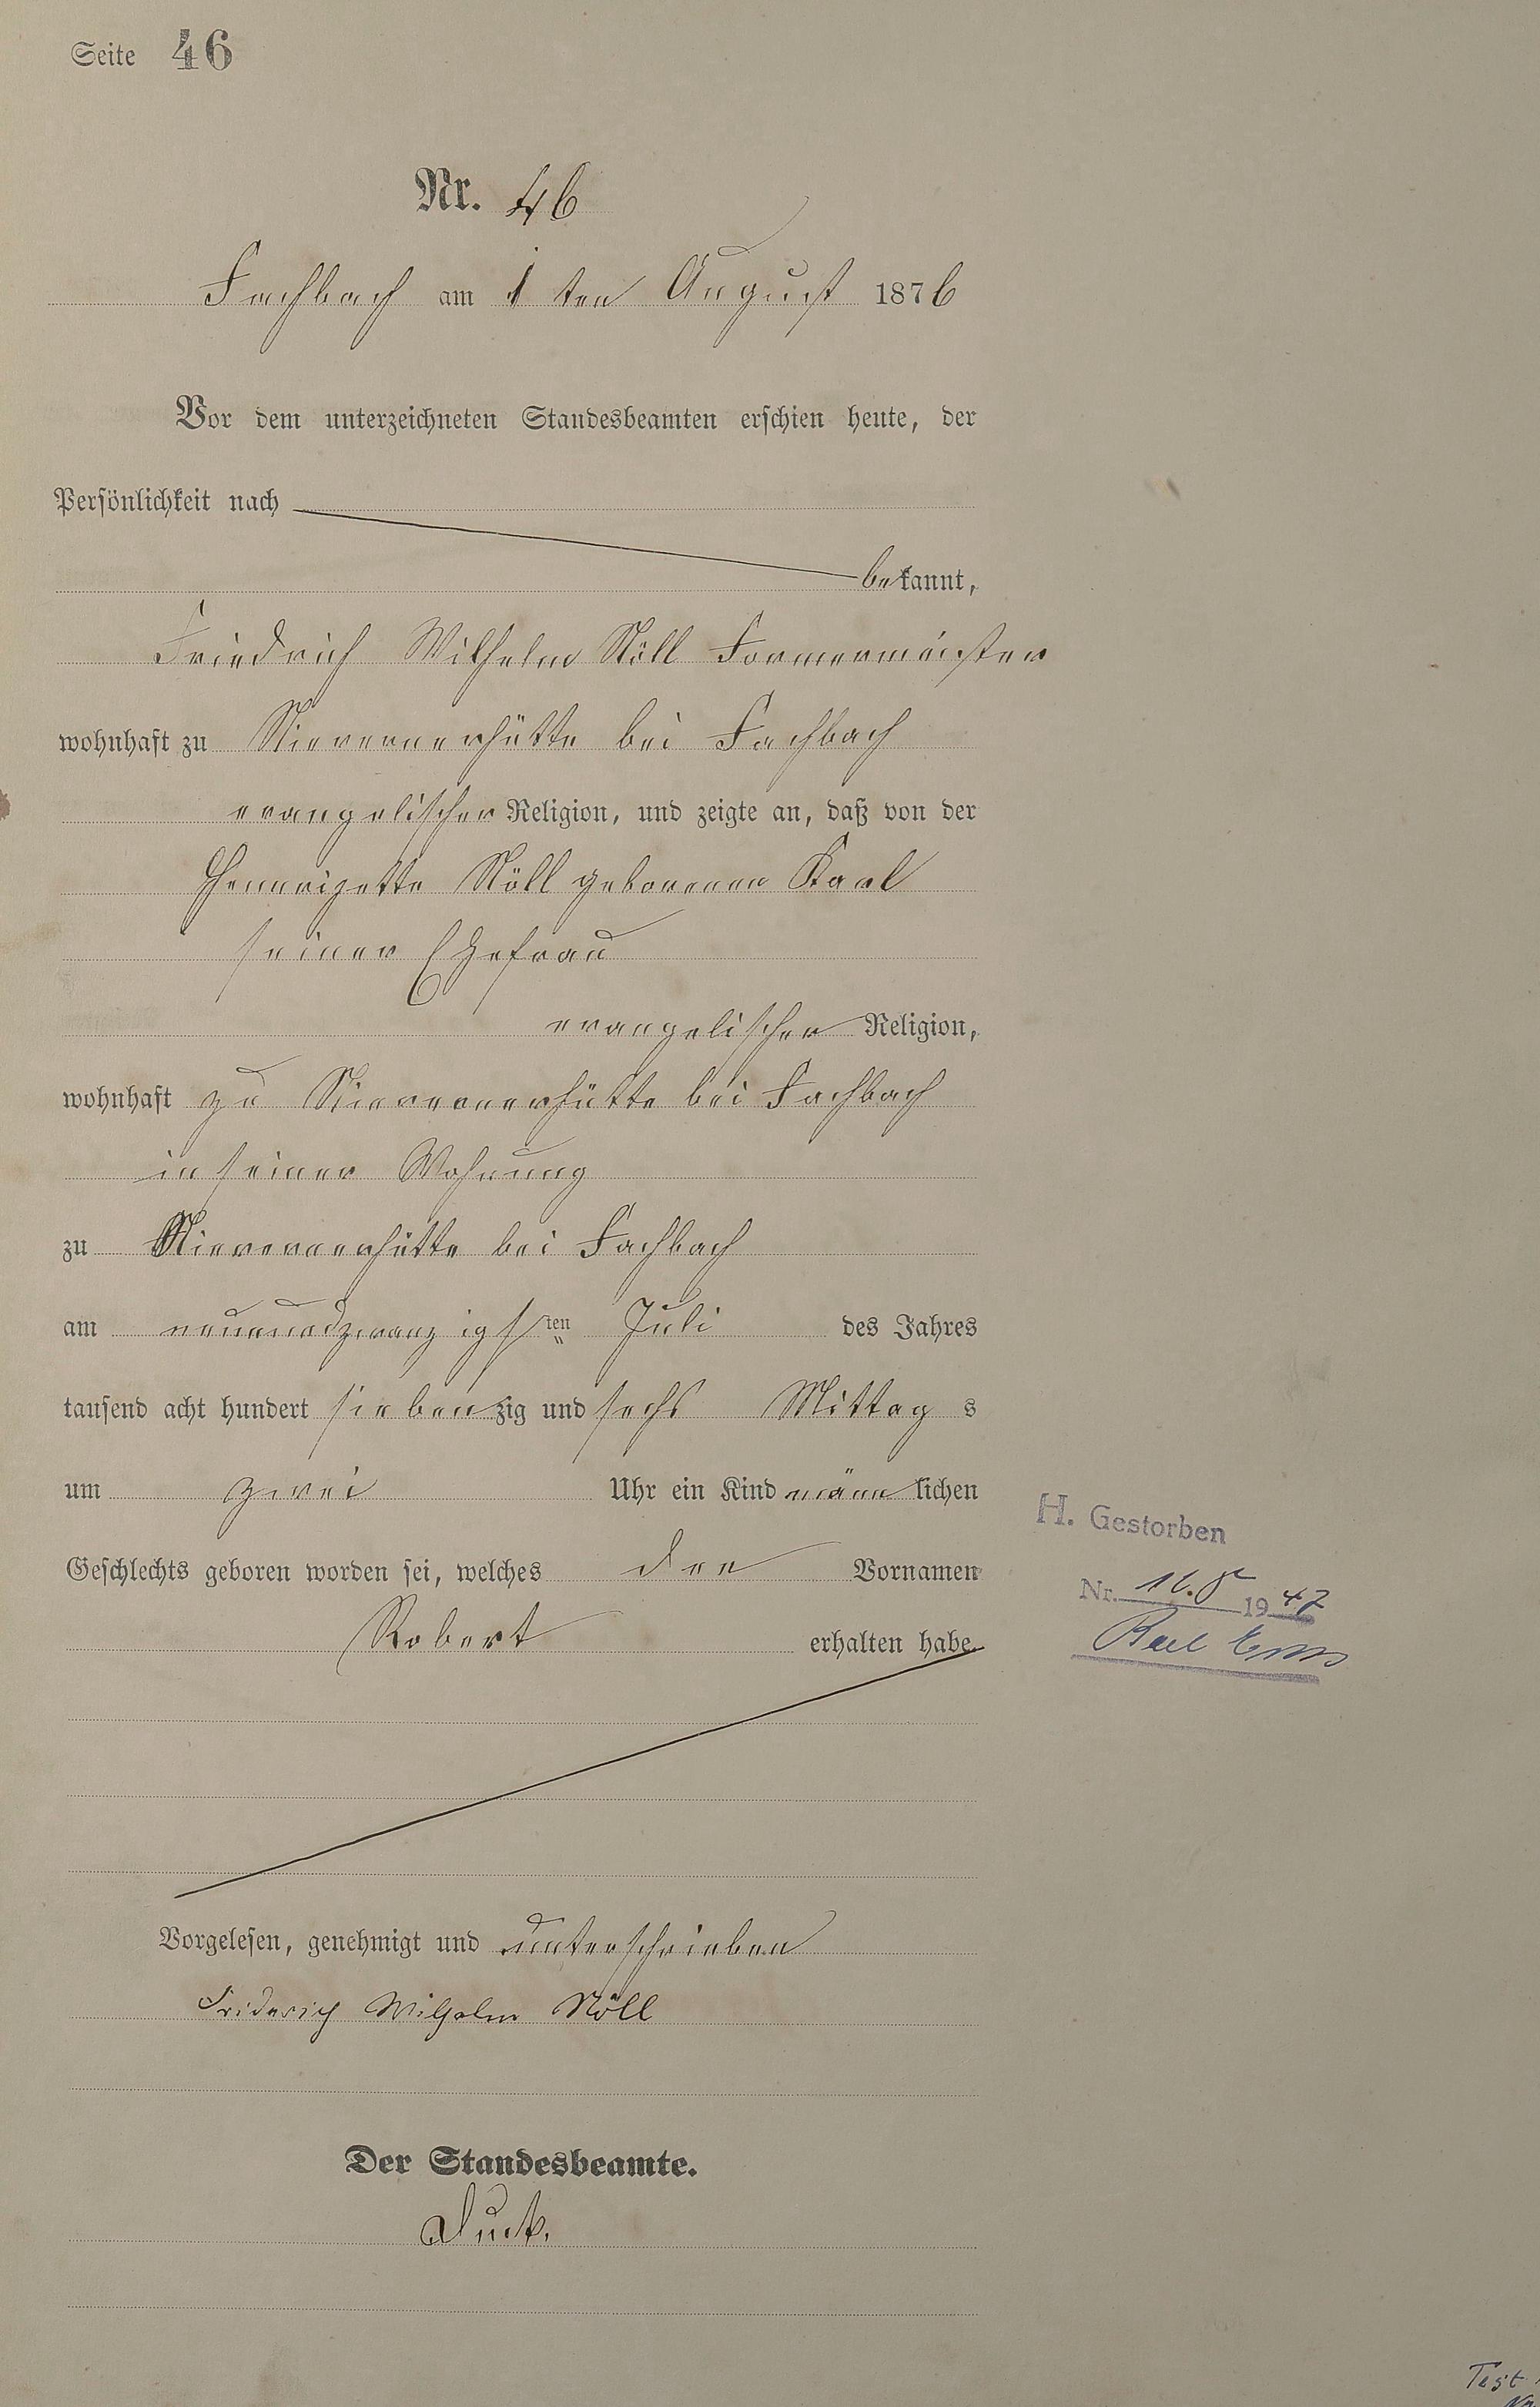 Seite 46
Nr. 46
Fachbach am 1 ten August 1876
Vor dem unterzeichneten Standesbeamten erschien heute, der
Persönlichkeit nach
bekannt,
Friedrich Wilhelm Nöll Formermeister
wohnhaft zu Nievernerhütte bei Fachbach
evangelischer Religion, und zeigte an, daß von der
Hennrizette Nöll geborenen
seiner Ehefrau
evangelischer Religion,
wohnhaft zu Nievernerhütte bei Fachbach
in seiner Wohnung
zu Nievernerhütte bei Fachbach
am neunundzwanzigsten Juli des Jahres
tausend acht hundert siebenzig und sechs Mittag s
um zwei Uhr ein Kind männlichen
Geschlechts geboren worden sei, welches den Vornamen
Robert erhalten habe
H. Gestorben
Nr. 1947
Bad Ems
Vorgelesen, genehmigt und unterschrieben
Friderich Wilhelm Nöll
Der Standesbeamte.
Test